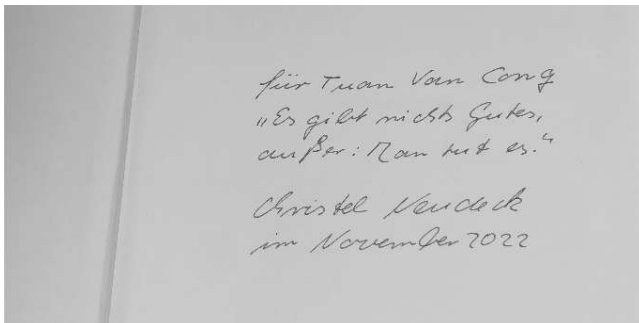 für Tuan Van Cong
„Es gibt nichts Gutes,
außer: Man tut es."
Christel Neudeck
im November 2022